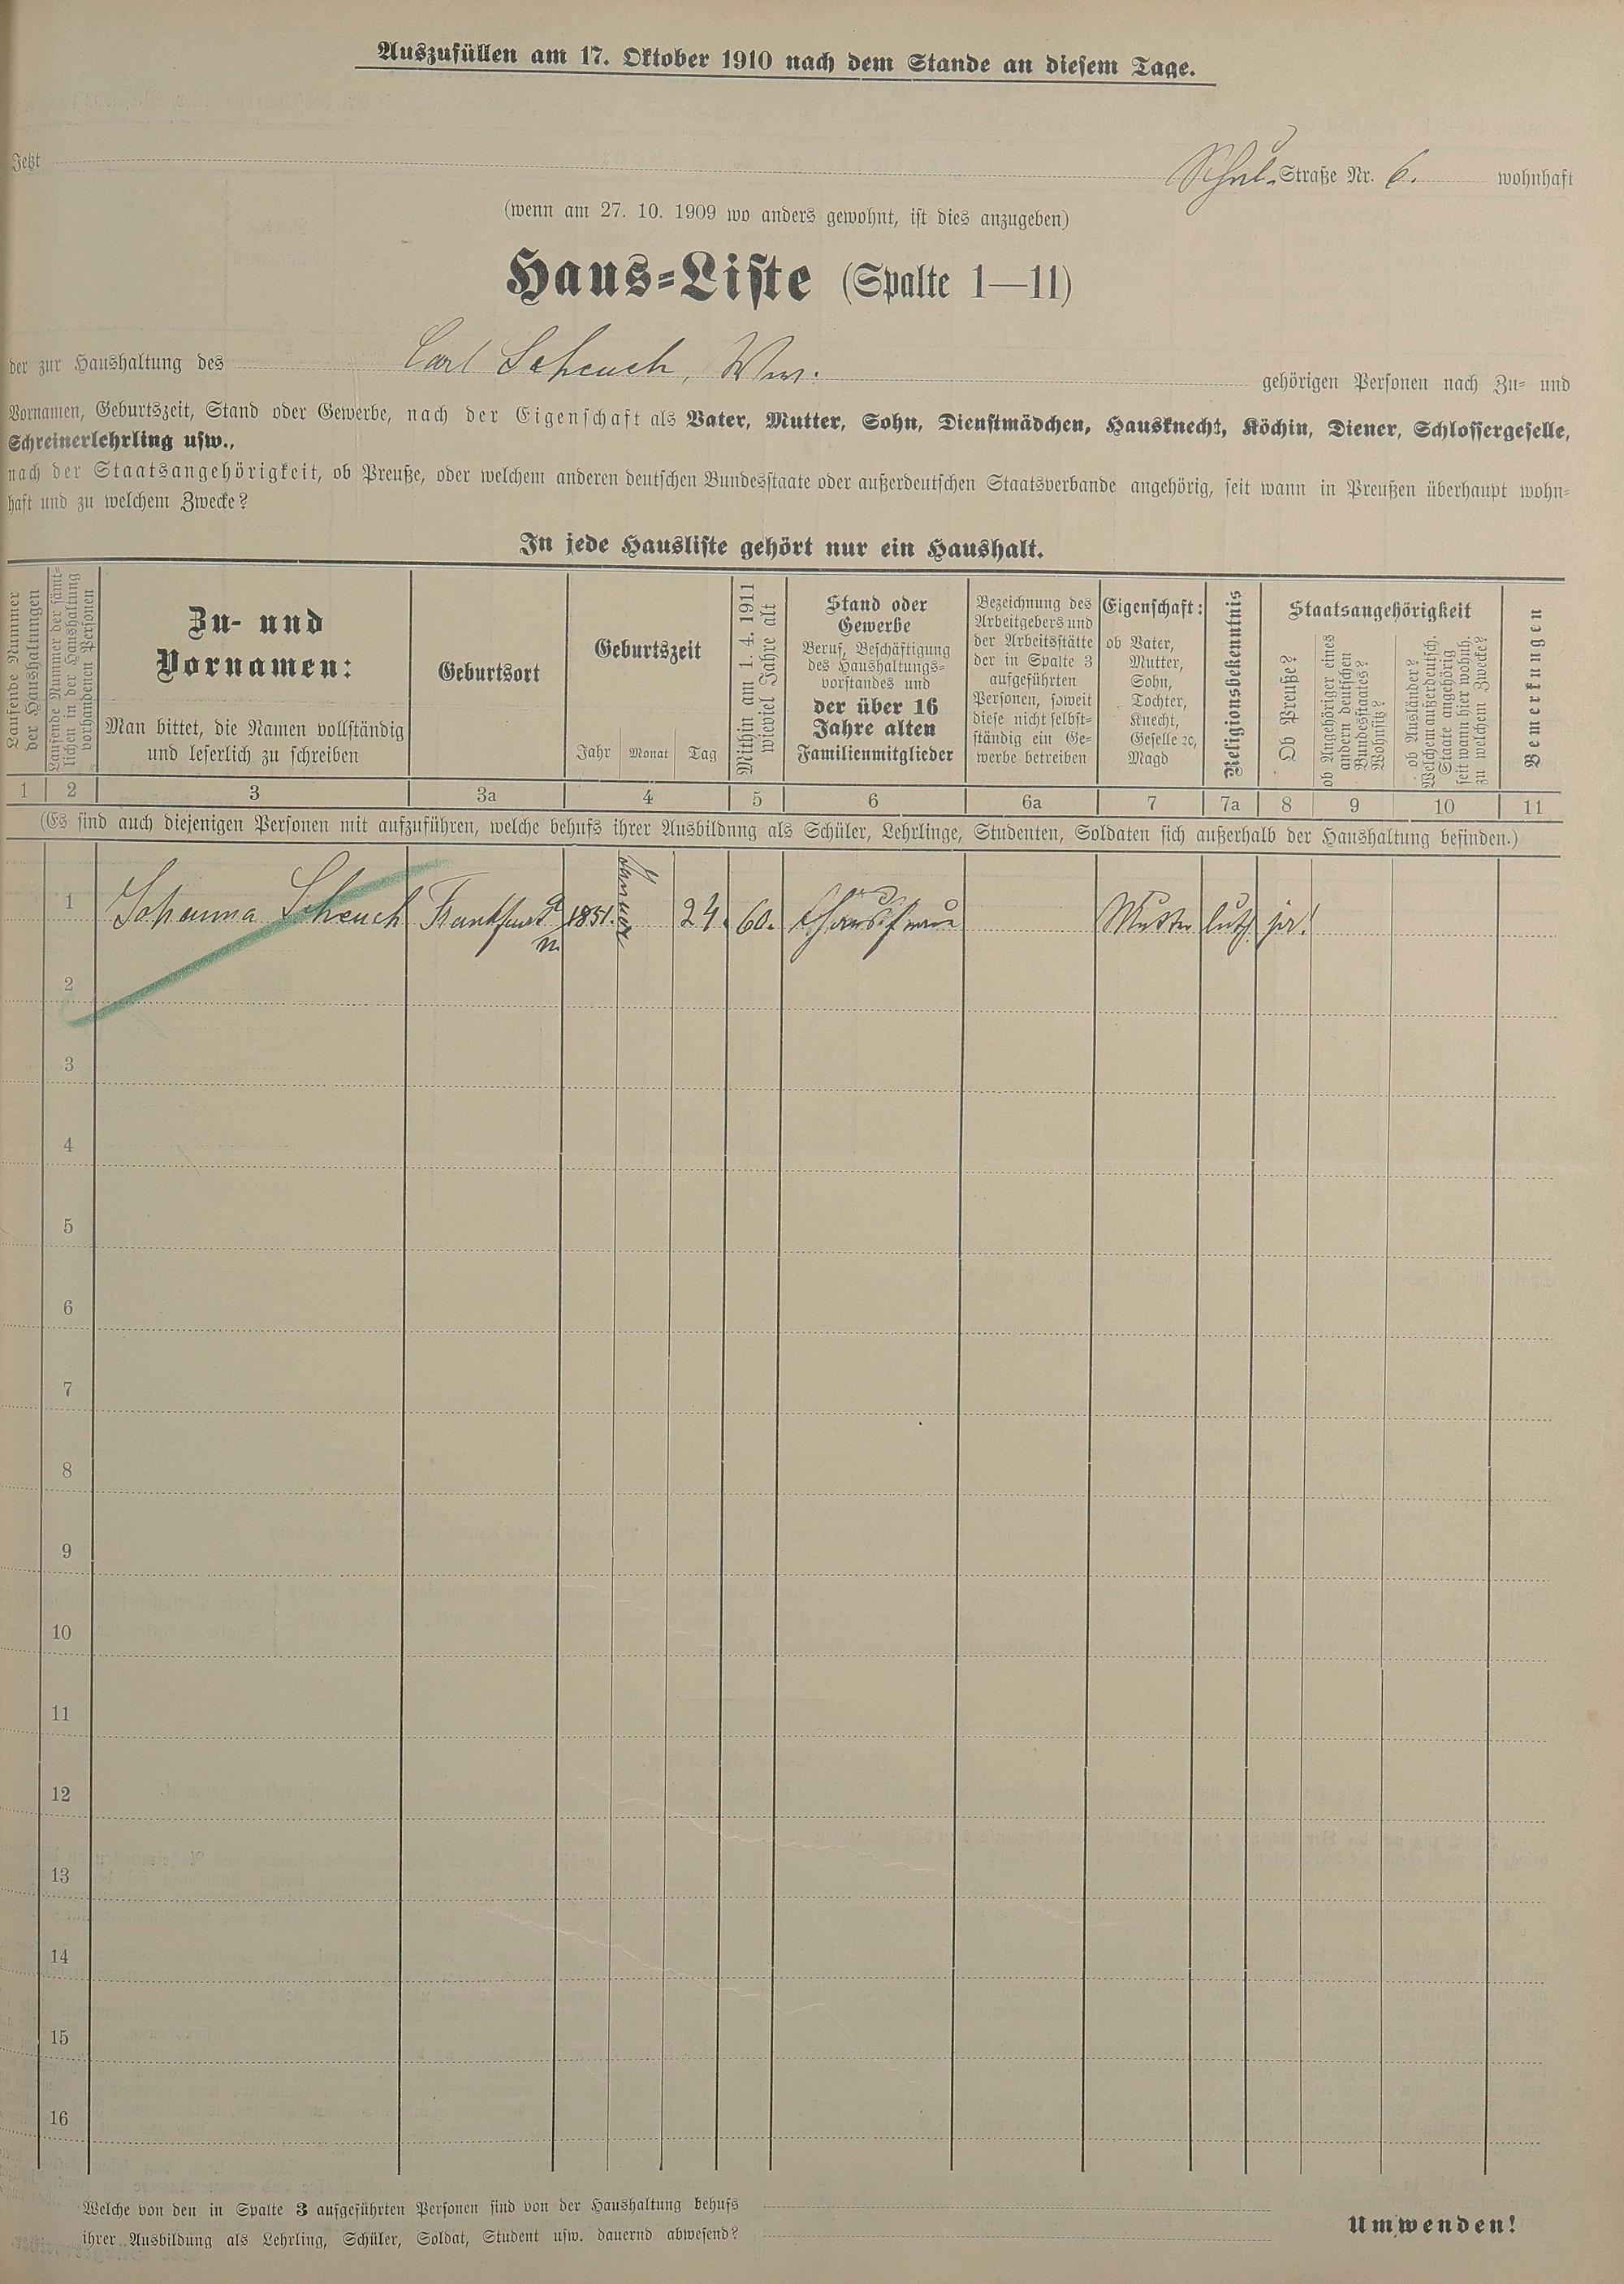 Auszufüllen am 17. Oktober 1910 nach dem Stande an diesem Tage.
Jetzt Schul-Straße Nr. 6. wohnhaft
(wenn am 27. 10. 1909 wo anders gewohnt, ist dies anzugeben)
Haus-Liste (Spalte 1—11)
der zur Haushaltung des Carl Scheuch, Wwe. gehörigen Personen nach Zu- und
Vornamen, Geburtszeit, Stand oder Gewerbe, nach der Eigenschaft als Vater, Mutter, Sohn, Dienstmädchen, Hausknecht, Köchin, Diener, Schlossergeselle,
Schreinerlehrling usw.,
nach der Staatsangehörigkeit, ob Preuße, oder welchem anderen deutschen Bundesstaate oder außerdeutschen Staatsverbande angehörig, seit wann in Preußen überhaupt wohn-
haft und zu welchem Zwecke?
In jede Hausliste gehört nur ein Haushalt.
Laufende Nummer
der Haushaltungen
Laufende Nummer der sämt-
lichen in der Haushaltung
vorhandenen Personen
Zu- und
Vornamen:
Man bittet, die Namen vollständig
und leserlich zu schreiben
Geburtsort
Geburtszeit
Jahr Monat Tag
Mithin am 1. 4. 1911
wieviel Jahre alt
Stand oder
Gewerbe
Beruf, Beschäftigung
des Haushaltungs-
vorstandes und
der über 16
Jahre alten
Familienmitglieder
Bezeichnung des
Arbeitgebers und
der Arbeitsstätte
der in Spalte 3
aufgeführten
Personen, soweit
diese nicht selbst-
ständig ein Ge-
werbe betreiben
Eigenschaft:
ob Vater,
Mutter,
Sohn,
Tochter,
Knecht,
Geselle ꝛc,
Magd
Religionsbekenntnis
Staatsangehörigkeit
Ob Preuße?
ob Angehöriger eines
andern deutschen
Bundesstaates?
Wohnsitz?
ob Ausländer?
Welchem außerdeutsch.
Staate angehörig
seit wann hier wohnh.
zu welchem Zwecke?
Bemerkungen
1 2 3 3a 4 5 6 6a 7 7a 8 9 10 11
(Es sind auch diejenigen Personen mit aufzuführen, welche behufs ihrer Ausbildung als Schüler, Lehrlinge, Studenten, Soldaten sich außerhalb der Haushaltung befinden.)
1 Johanna Scheuch Frankfurt a/M. 1851. Januar 24. 60. Hausfrau Mutter luth. ja!
2
3
4
5
6
7
8
9
10
11
12
13
14
15
16
Welche von den in Spalte 3 aufgeführten Personen sind von der Haushaltung behufs
ihrer Ausbildung als Lehrling, Schüler, Soldat, Student usw. dauernd abwesend?
Umwenden!